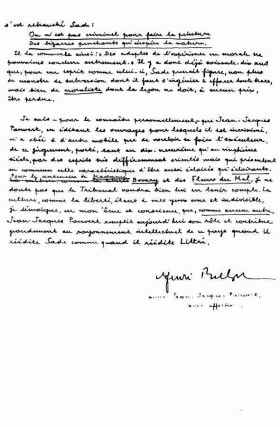 s'est retranché Sade :
On n'est pas criminel pour faire la peinture
Des bizarres penchants qu'inspire la nature.
Il la somme ainsi : Des adeptes de l'expérience en morale ne
pourraient conclure autrement. Il y a donc déjà soixante-dix ans
que, pour un esprit comme celui-ci, Sade prenait figure, non plus
de monstre de subversion dont il faut s'ingénier à effacer toute trace,
mais bien de moraliste dont la leçon ne doit, à aucun prix,
être perdue.
Je sais - pour le connaître personnellement - que Jean-Jacques
Pauvert, en éditant les ouvrages pour lesquels il est incriminé,
n'a obéi à d'autre mobile que de vouloir se faire l'exécuteur
de ce jugement, porté, tant au dix-neuvième qu'au vingtième
siècle, par des esprits très différemment orientés mais qui présentent
en commun cette caractéristique d'être aussi éclairés qu'éclairants.
Bovary et des Fleurs du Mal, je ne
doute pas que le Tribunal voudra bien lui en tenir compte. La
culture, comme la liberté, étant à mes yeux une et indivisible,
je témoigne, en mon âme et conscience, que, comme aucun autre,
Jean-Jacques Pauvert remplit aujourd'hui son rôle et contribue
grandement au rayonnement intellectuel de ce pays quand il
réédite Sade comme quand il réédite Littré.
Jean-Jacques Pauvert,